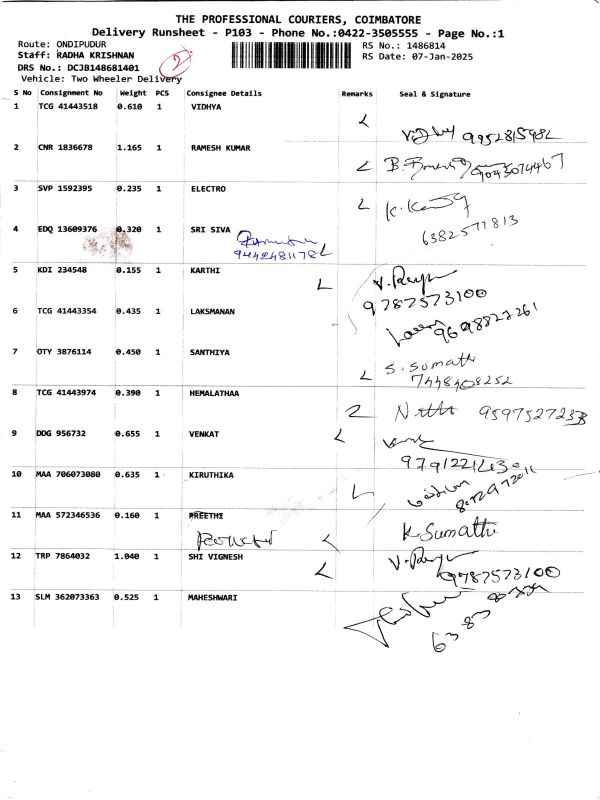 THE PROFESSIONAL COURIERS, COIMBATORE
Delivery Runsheet - P103 - Phone No.:0422-3505555 - Page No.:1
Route: ONDIPUDUR RS No.: 1486814
Staff: RADHA KRISHNAN RS Date: 07-Jan-2025
DRS No.: DCJB148681401 2
Vehicle: Two Wheeler Delivery
S No Consignment No Weight PCS Consignee Details Remarks Seal & Signature
1 TCG 41443518 0.610 1 VIDHYA
9952815982
2 CNR 1836678 1.165 1 RAMESH KUMAR
9043074467
3 SVP 1592395 0.235 1 ELECTRO
6382577813
4 EDQ 13609376 0.320 1 SRI SIVA
9442481178
5 KDI 234548 0.155 1 KARTHI
9787573100
6 TCG 41443354 0.435 1 LAKSMANAN
9698822261
7 OTY 3876114 0.450 1 SANTHIYA
S. Sumathi
7448408252
8 TCG 41443974 0.390 1 HEMALATHAA
9 DDG 956732 0.655 1 VENKAT
10 MAA 706073080 0.635 1 KIRUTHIKA
11 MAA 572346536 0.160 1 PREETHI
K. Sumathi
12 TRP 7864032 1.040 1 SHI VIGNESH
9787573100
13 SLM 362073363 0.525 1 MAHESHWARI